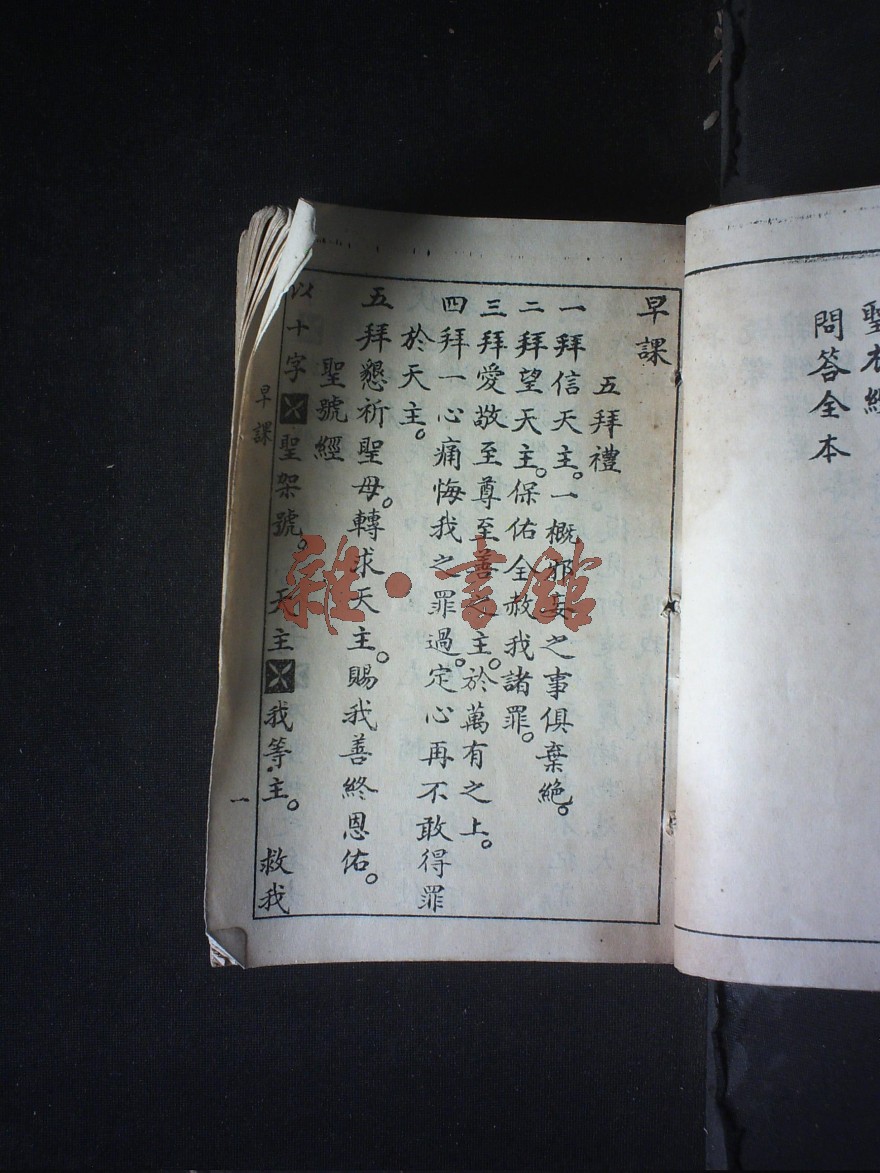 聖衣經
問答全本
早課
五拜禮
一拜信天主。一概邪妄之事俱棄絶。
二拜望天主。保佑全赦我諸罪。
三拜愛敬至尊至善之主。於萬有之上。
四拜一心痛悔我之罪過。定心再不敢得罪
於天主。
五拜懇祈聖母。轉求天主。賜我善終恩佑。
聖號經
以十字聖架號。天主我等主。救我
早課
一
雜·書館